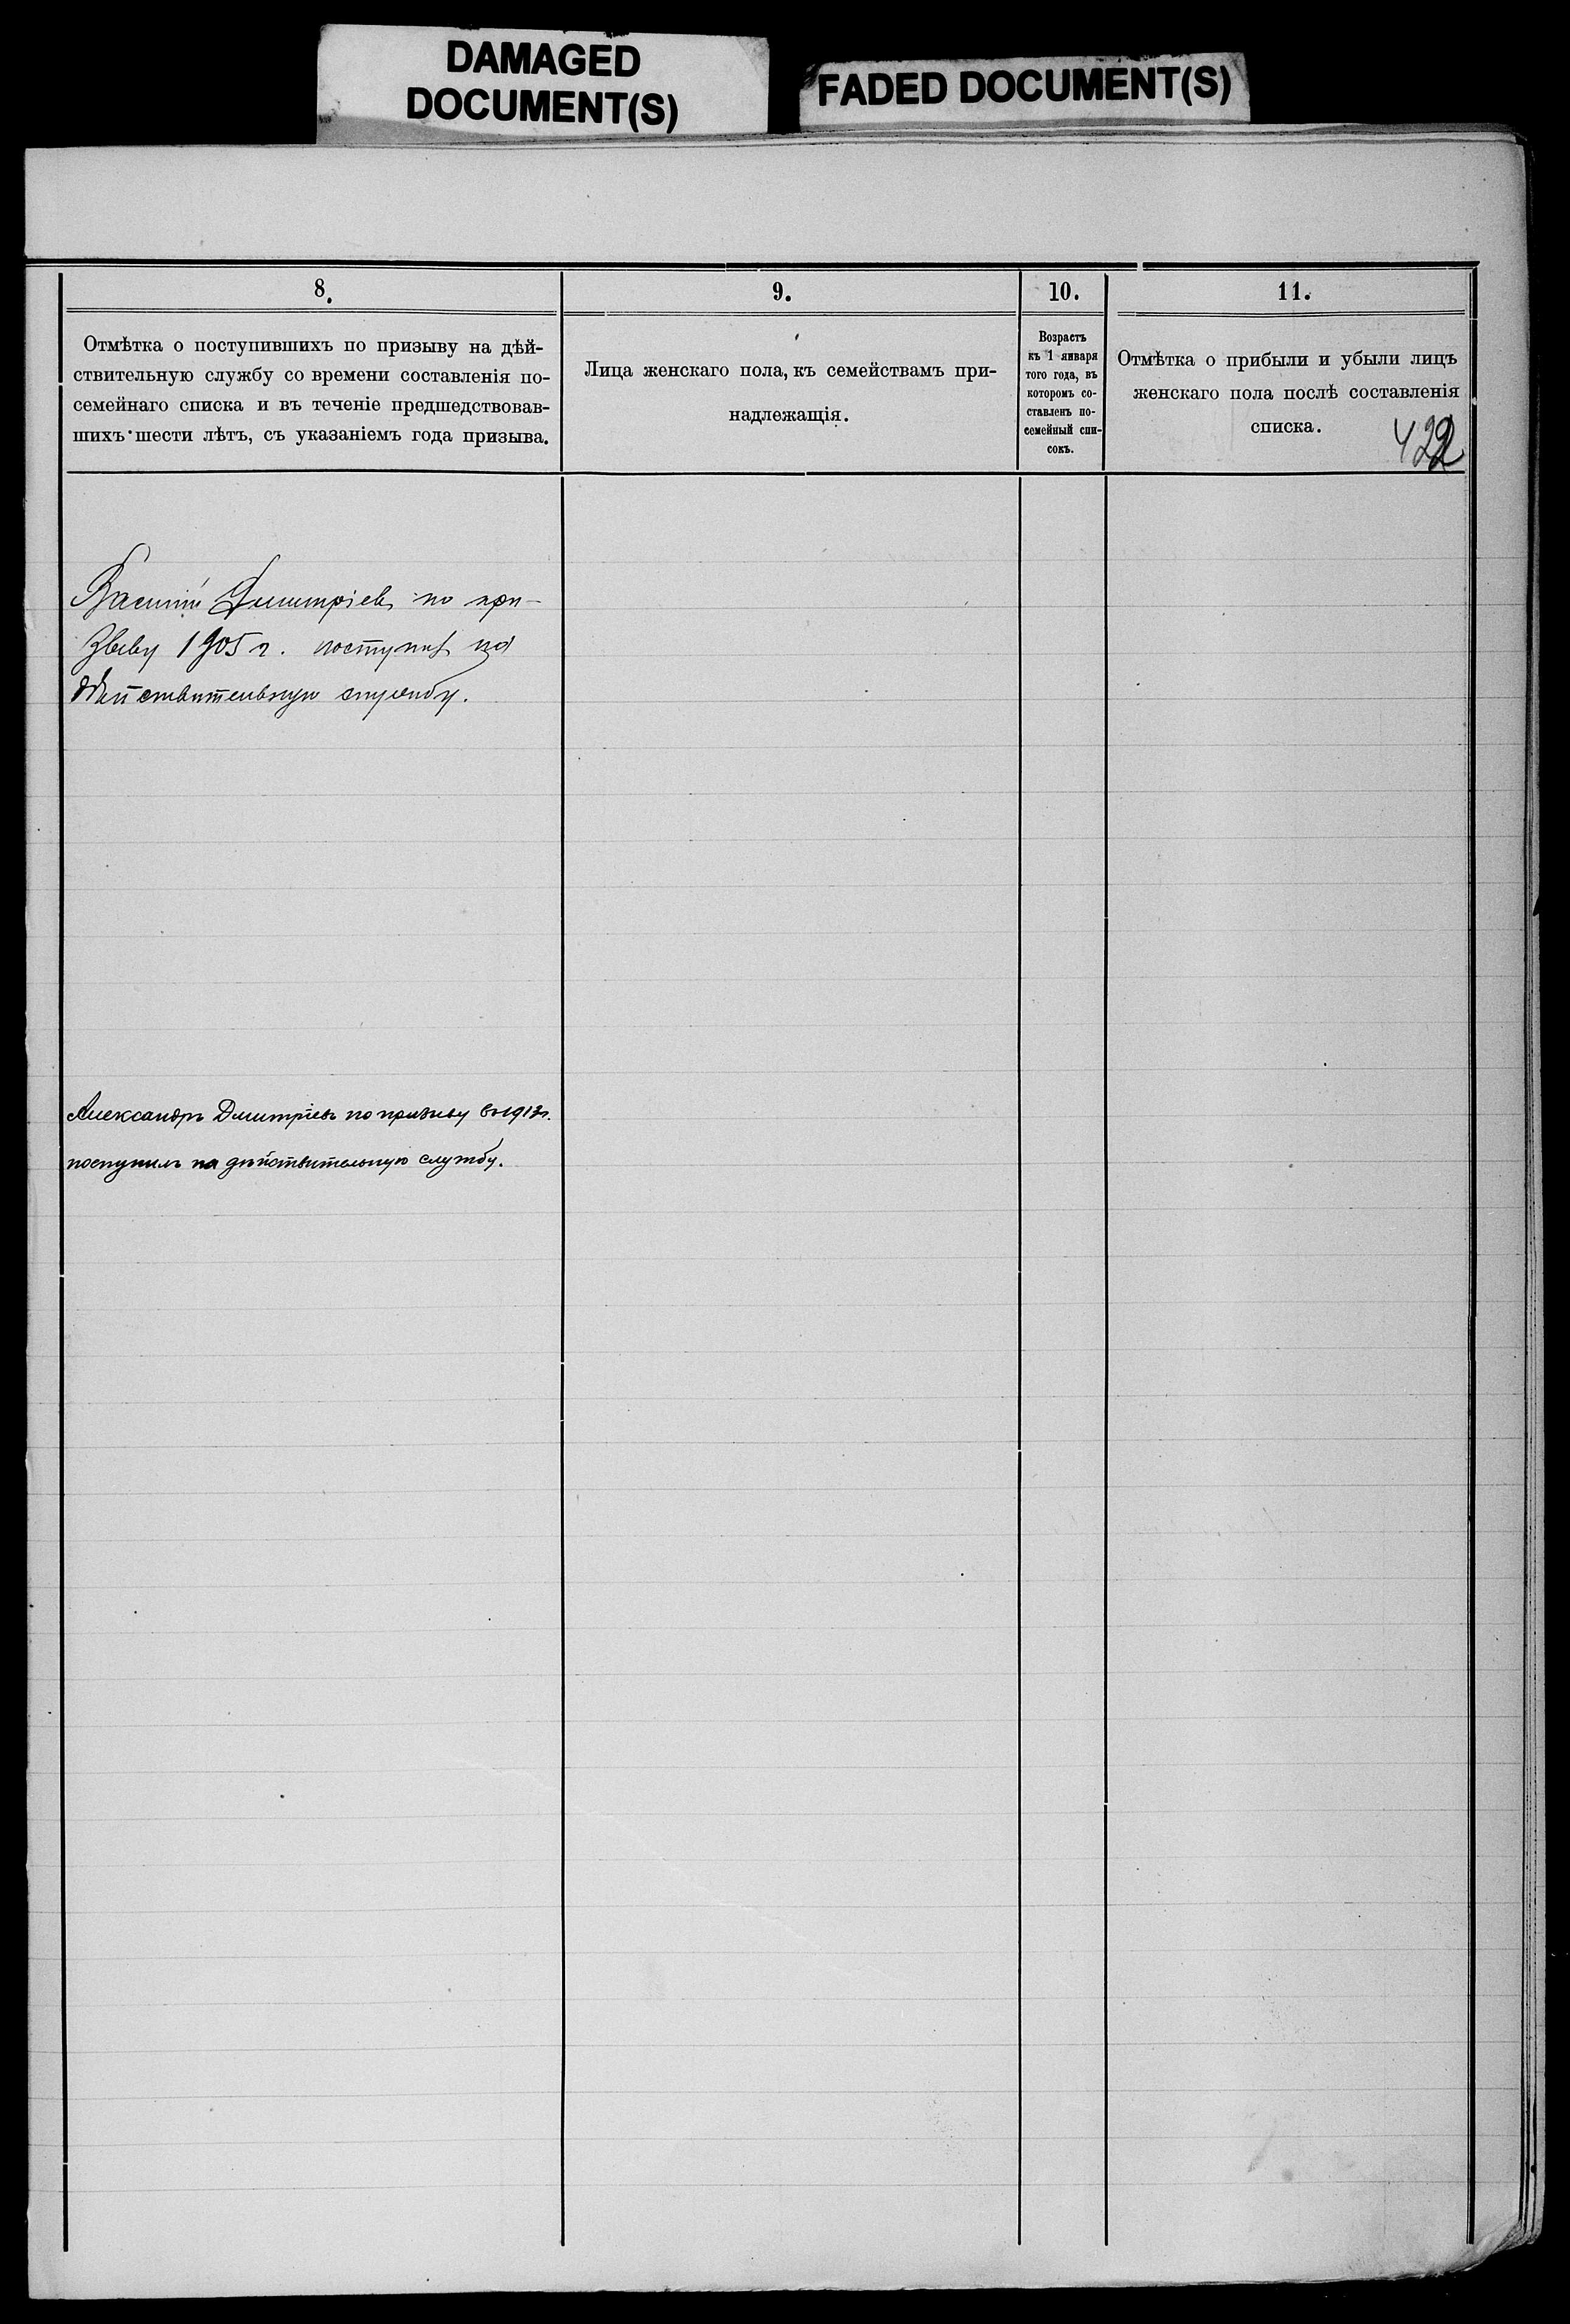 DAMAGED
DOCUMENT(S)
FADED DOCUMENT(S)
8.
Отмѣтка о поступившихъ по призыву на дѣй-
ствительную службу со времени составленія по-
семейнаго списка и въ теченіе предшедствовав-
шихъ шести лѣтъ, съ указаніемъ года призыва.
9.
Лица женскаго пола, къ семействамъ при-
надлежащія.
10.
Возрастъ
къ 1 января
того года, въ
которомъ со-
ставленъ по-
семейный спи-
сокъ.
11.
Отмѣтка о прибыли и убыли лицъ
женскаго пола послѣ составленія
списка.
422
Василій Димитріевъ по при-
зыву 1905 г. поступилъ на
дѣйствительную службу.
Александръ Дмитріевъ по призыву въ 1913г.
поступилъ на дѣйствительную службу.